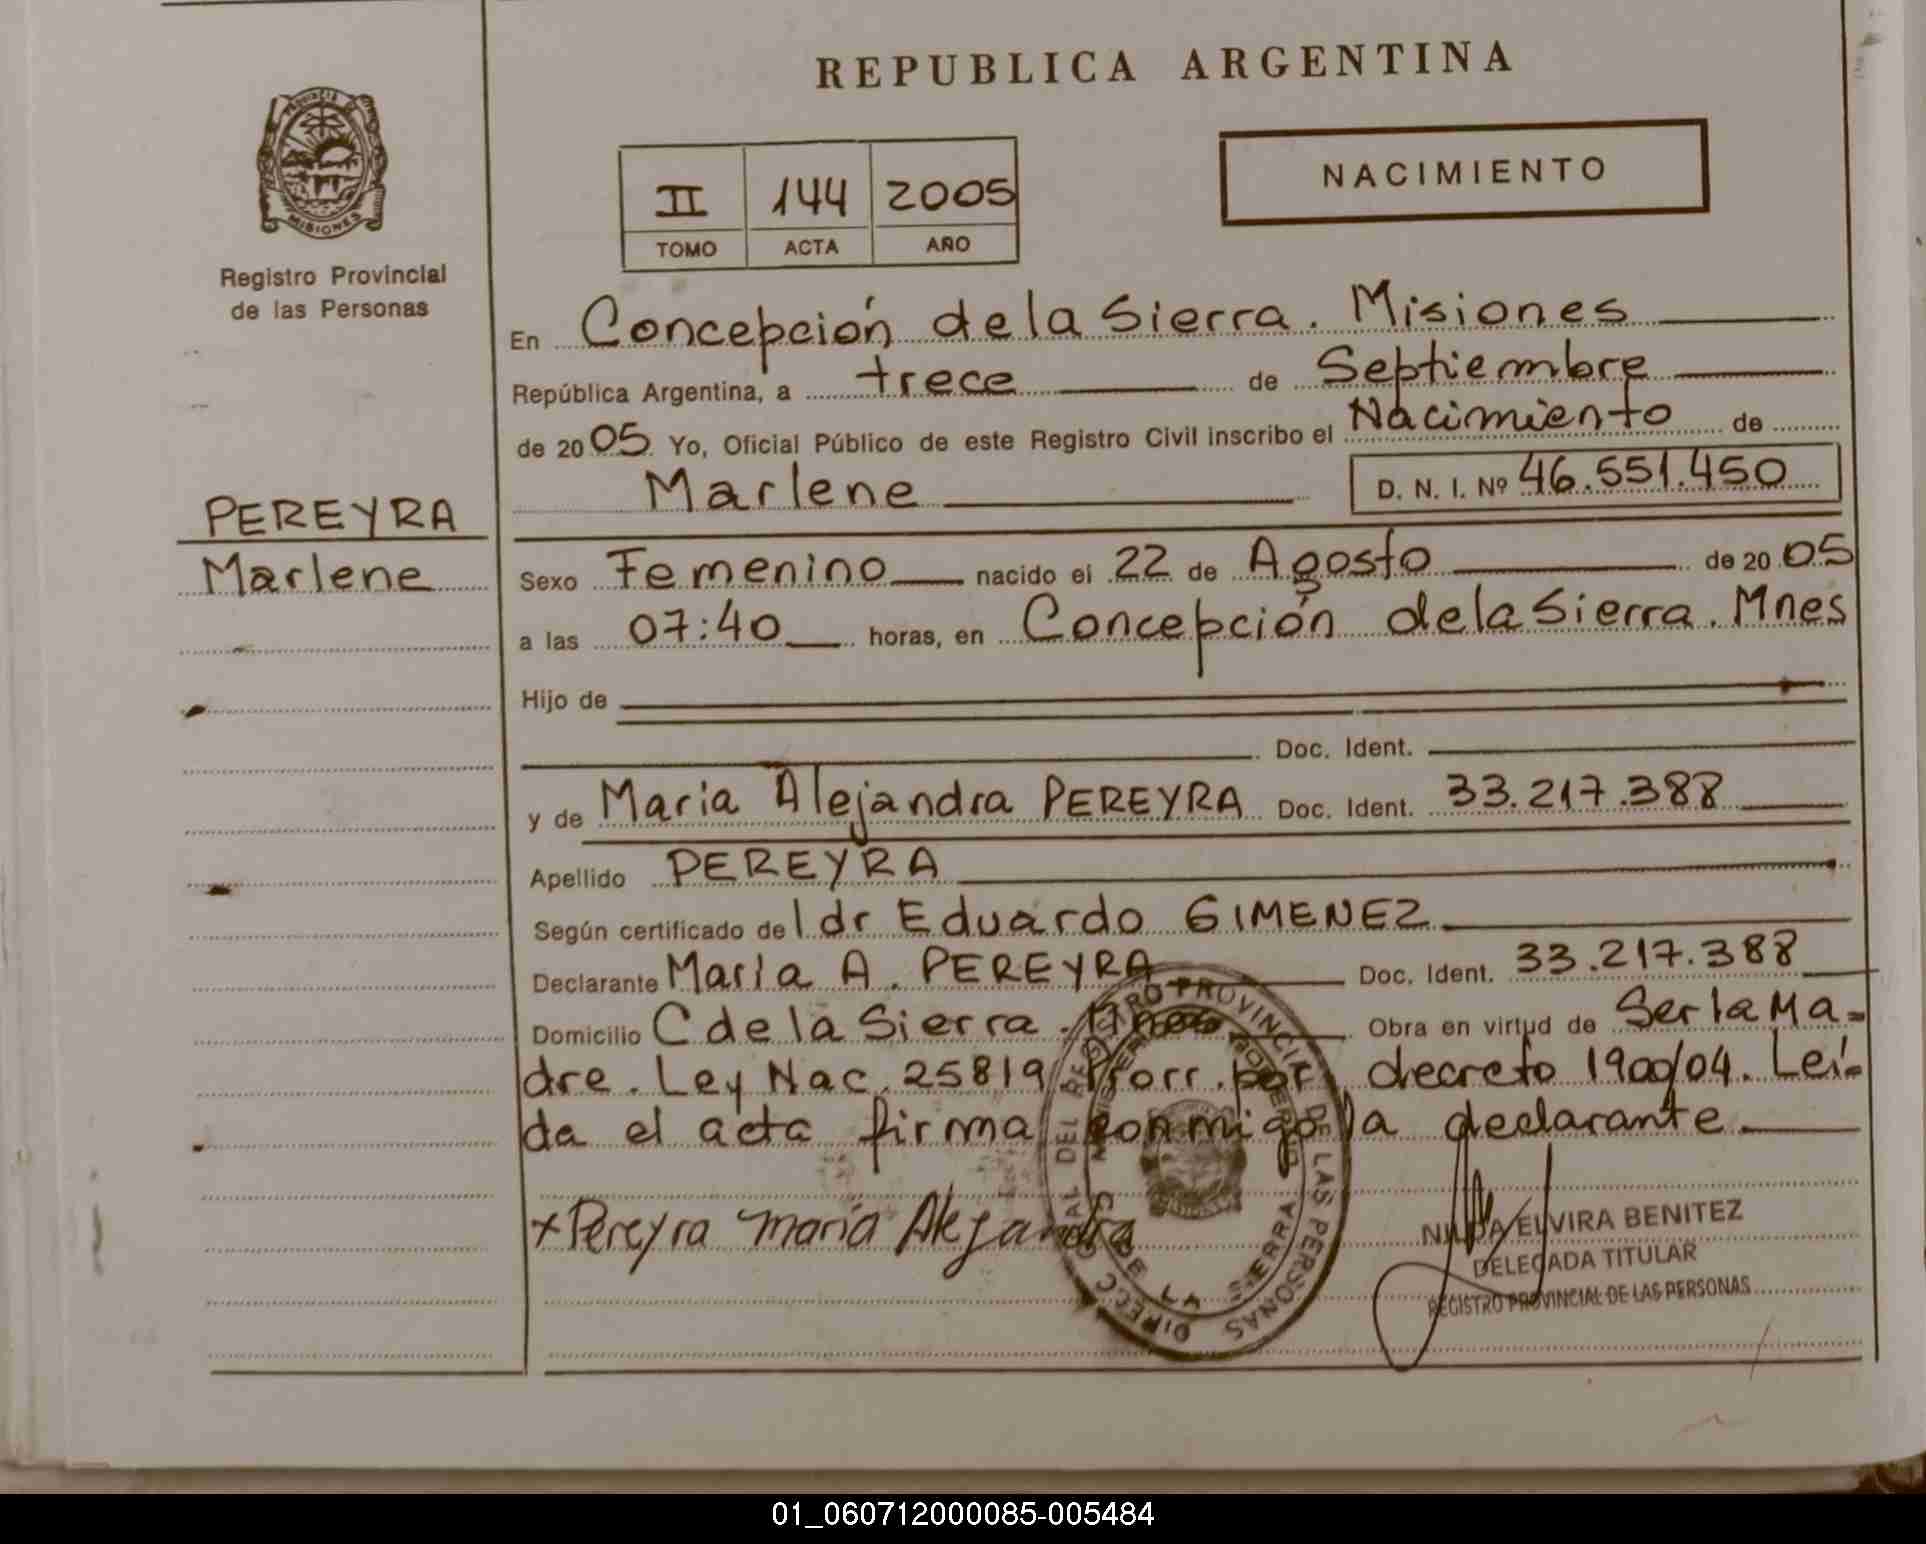 REPUBLICA ARGENTINA
PROVINCIA DE
MISIONES
Registro Provincial
de las Personas
II 144 2005
TOMO ACTA AÑO
NACIMIENTO
En Concepción de la Sierra. Misiones
República Argentina, a trece de Septiembre
de 2005 Yo, Oficial Público de este Registro Civil inscribo el Nacimiento de
Marlene D. N. I. Nº 46.551.450
PEREYRA
Marlene
Sexo Femenino nacido el 22 de Agosto de 2005
a las 07:40 horas, en Concepción de la Sierra. Mnes
Hijo de
Doc. Ident.
y de Maria Alejandra PEREYRA Doc. Ident. 33.217.388
Apellido PEREYRA
Según certificado del dr Eduardo GIMENEZ
Declarante María A. PEREYRA Doc. Ident. 33.217.388
Domicilio C de la Sierra. Mnes Obra en virtud de Ser la Ma-
dre. Ley Nac. 25819 Prorr. por decreto 1900/04. Leí-
da el acta firma conmigo la declarante
+Pereyra maria Alejandra
DIRECC GRAL DEL REGISTRO PROVINCIAL DE LAS PERSONAS
DE LA SIERRA
NILDA ELVIRA BENITEZ
DELEGADA TITULAR
REGISTRO PROVINCIAL DE LAS PERSONAS
01_060712000085-005484